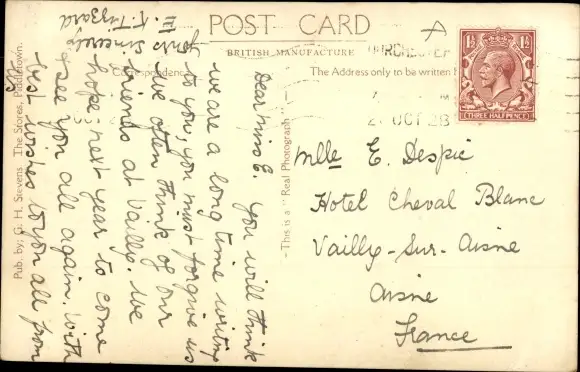 POST CARD
BRITISH MANUFACTURE
Correspondence
The Address only to be written
Pub. by: G. H. Stevens The Stores, Piddletown.
-This is a "Real Photograph"-
1½ 1½
THREE HALFPENCE
OCT 28
Dear Miss E. You will think
we are a long time writing
to you, you must forgive us
We often think of our
friends at Vailly. We
hope next year to come
& see you all again. With
best wishes to you all from
yours sincerely
E. K. Tizzard
Mlle E. Despie
Hotel Cheval Blanc
Vailly-Sur-Aisne
Aisne
France